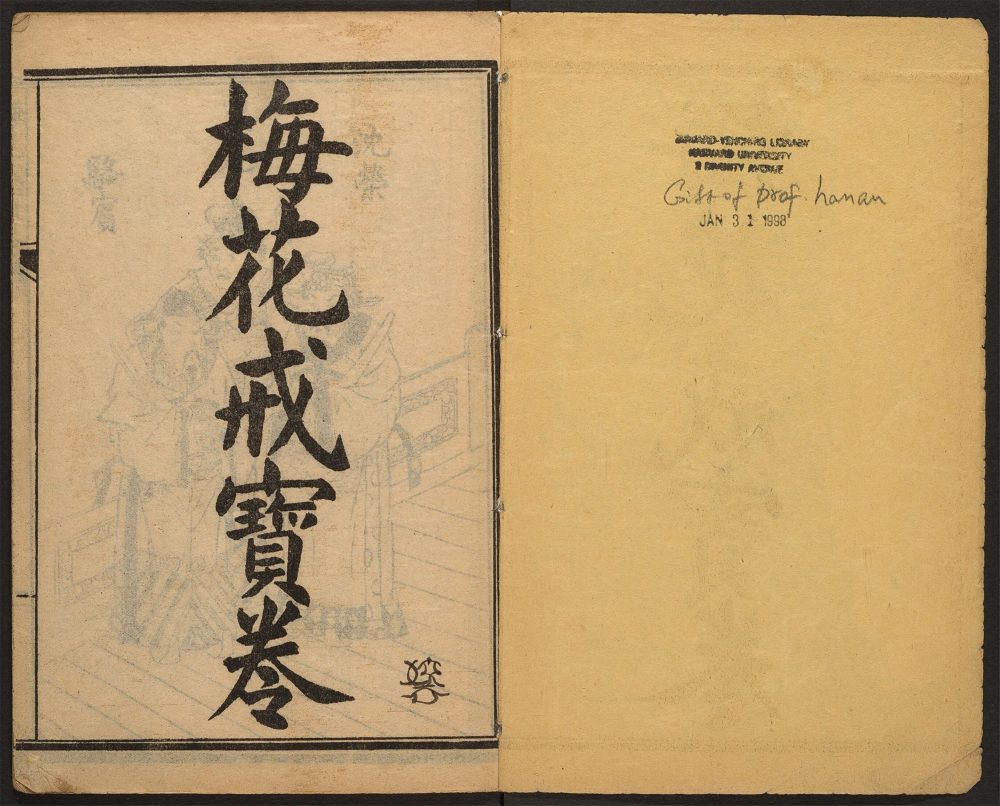 梅花戒寶卷
HARVARD-YENCHING LIBRARY
HARVARD UNIVERSITY
2 DIVINITY AVENUE
Gift of prof. hanan
JAN 31 1998